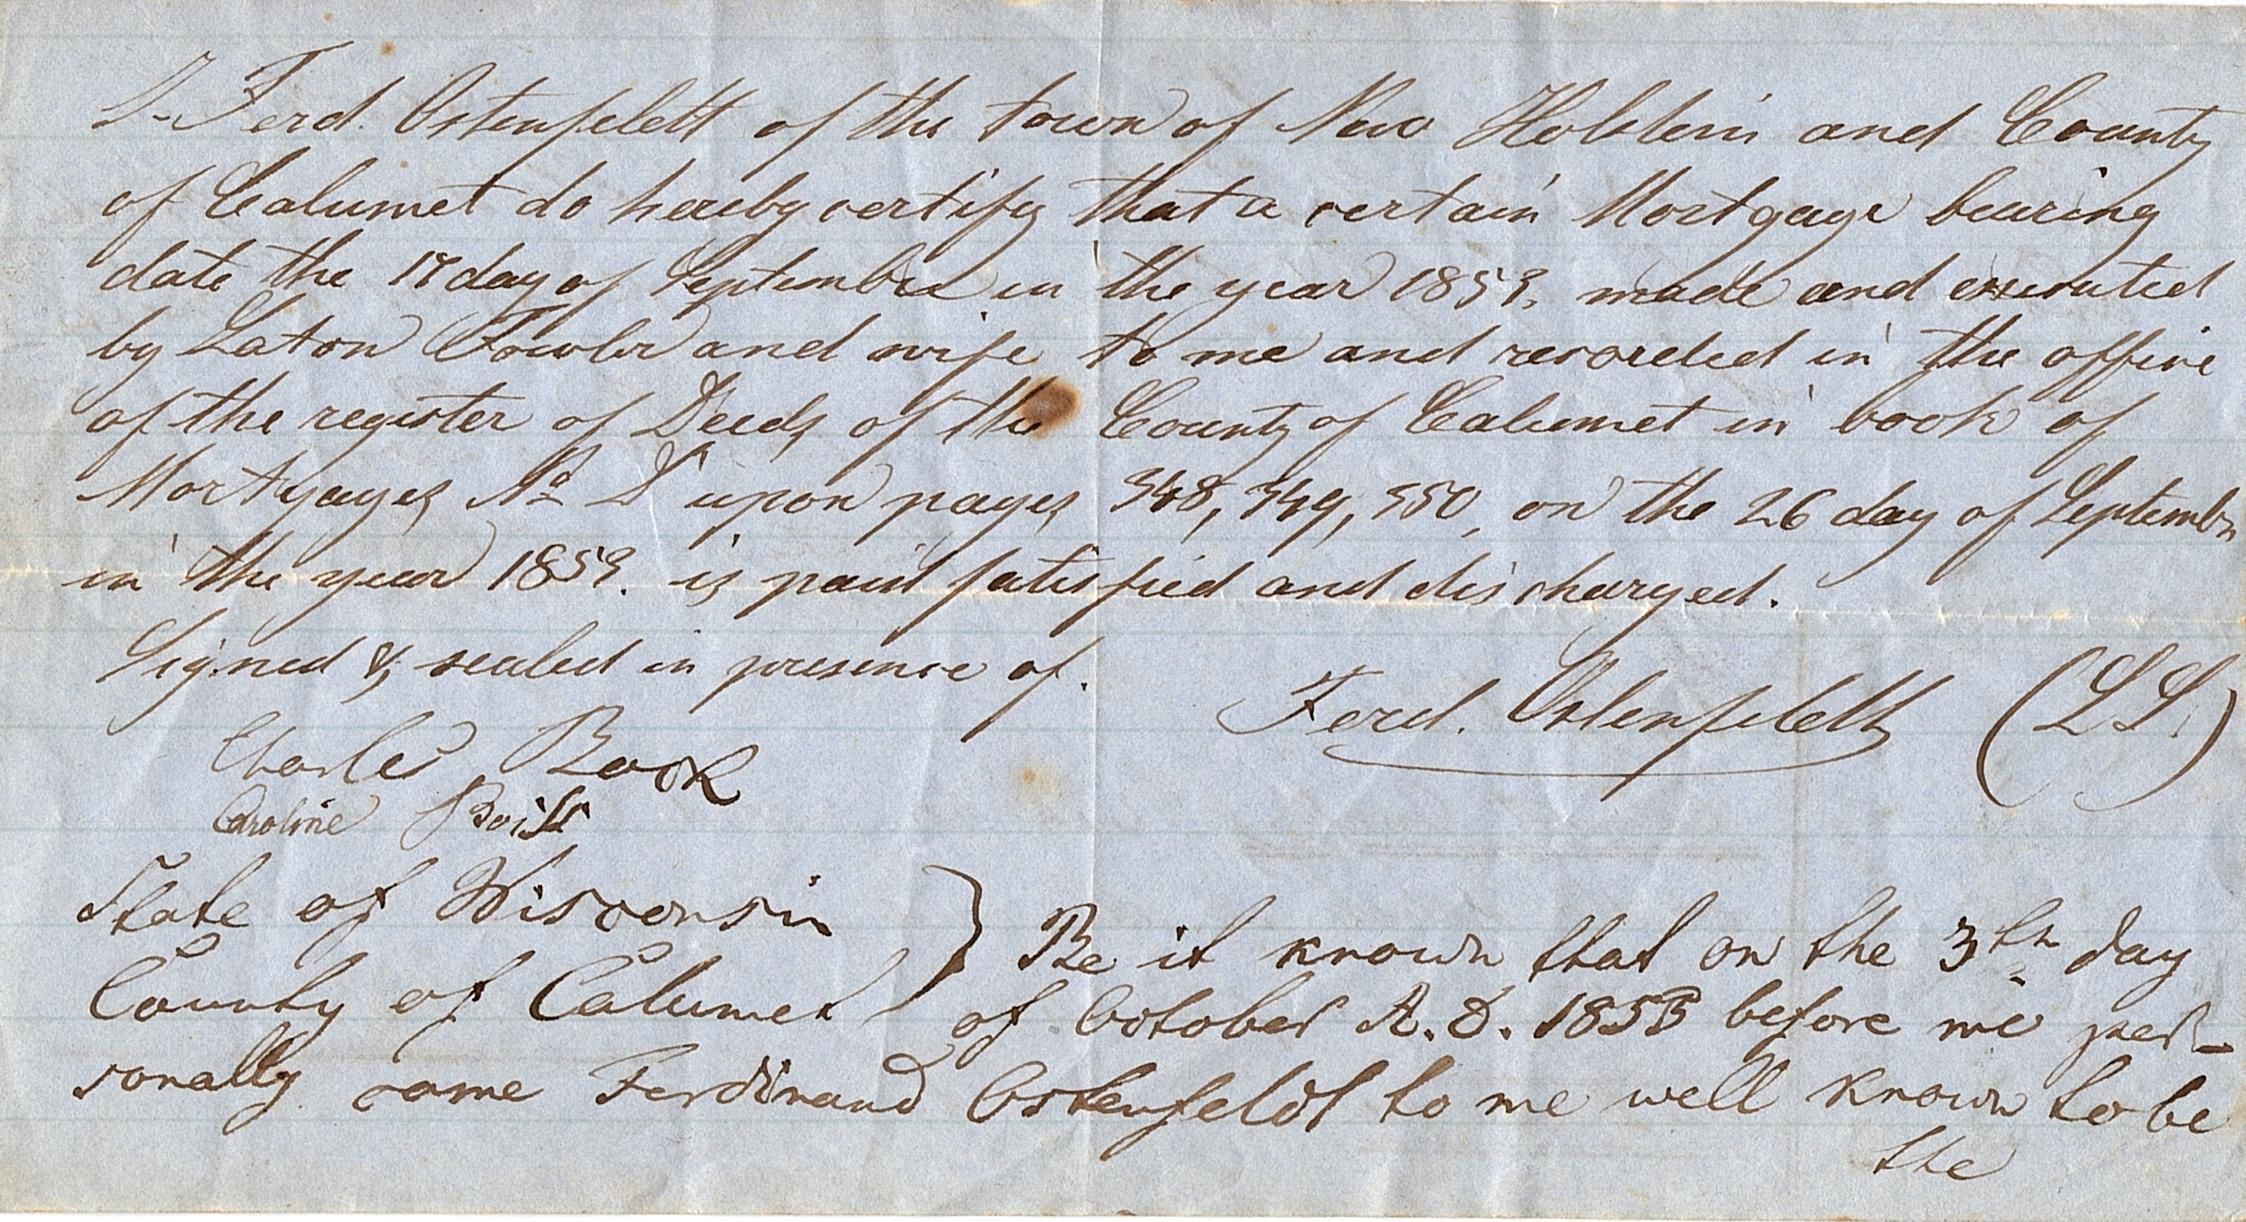 I Ferd. Ostenfeldt of the town of New Holstein and County
of Calumet do hereby certify that a certain Mortgage bearing
date the day of September in the year 1853, made and executed
by Laton Fowler and wife to me and recorded in the office
of the register of Deeds of the County of Calumet in book of
Mortgages No D upon pages 348, 349, 350, on the 26 day of September
in the year 1853. is paid satisfied and discharged.
Signed & sealed in presence of.
Ferd. Ostenfeldt (LS.)
Charles Book
Caroline
State of Wisconsin
County of Calumet } Be it known that on the 3th day
of October A.D. before me per-
sonally came Ferdinand Ostenfeldt to me well known to be
the